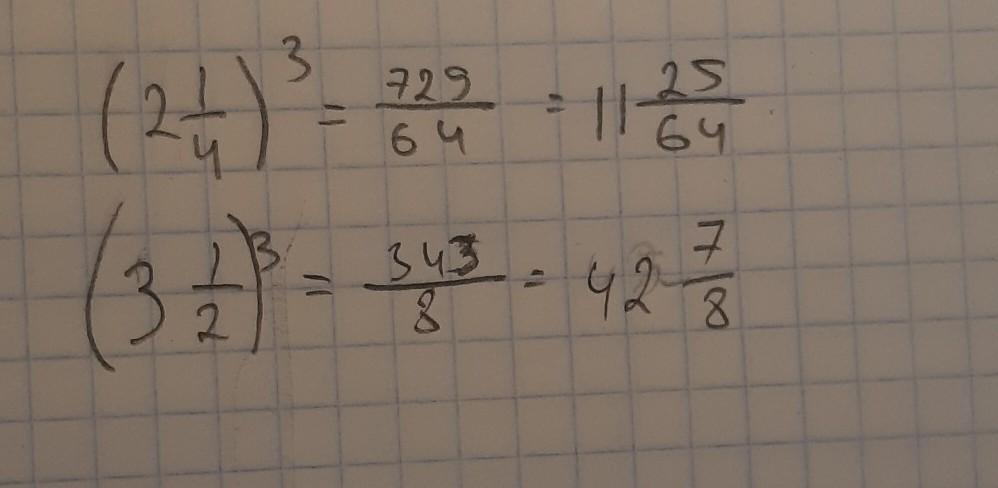 (2 1/4)^3 = 729/64 = 11 25/64
(3 1/2)^3 = 343/8 = 42 7/8